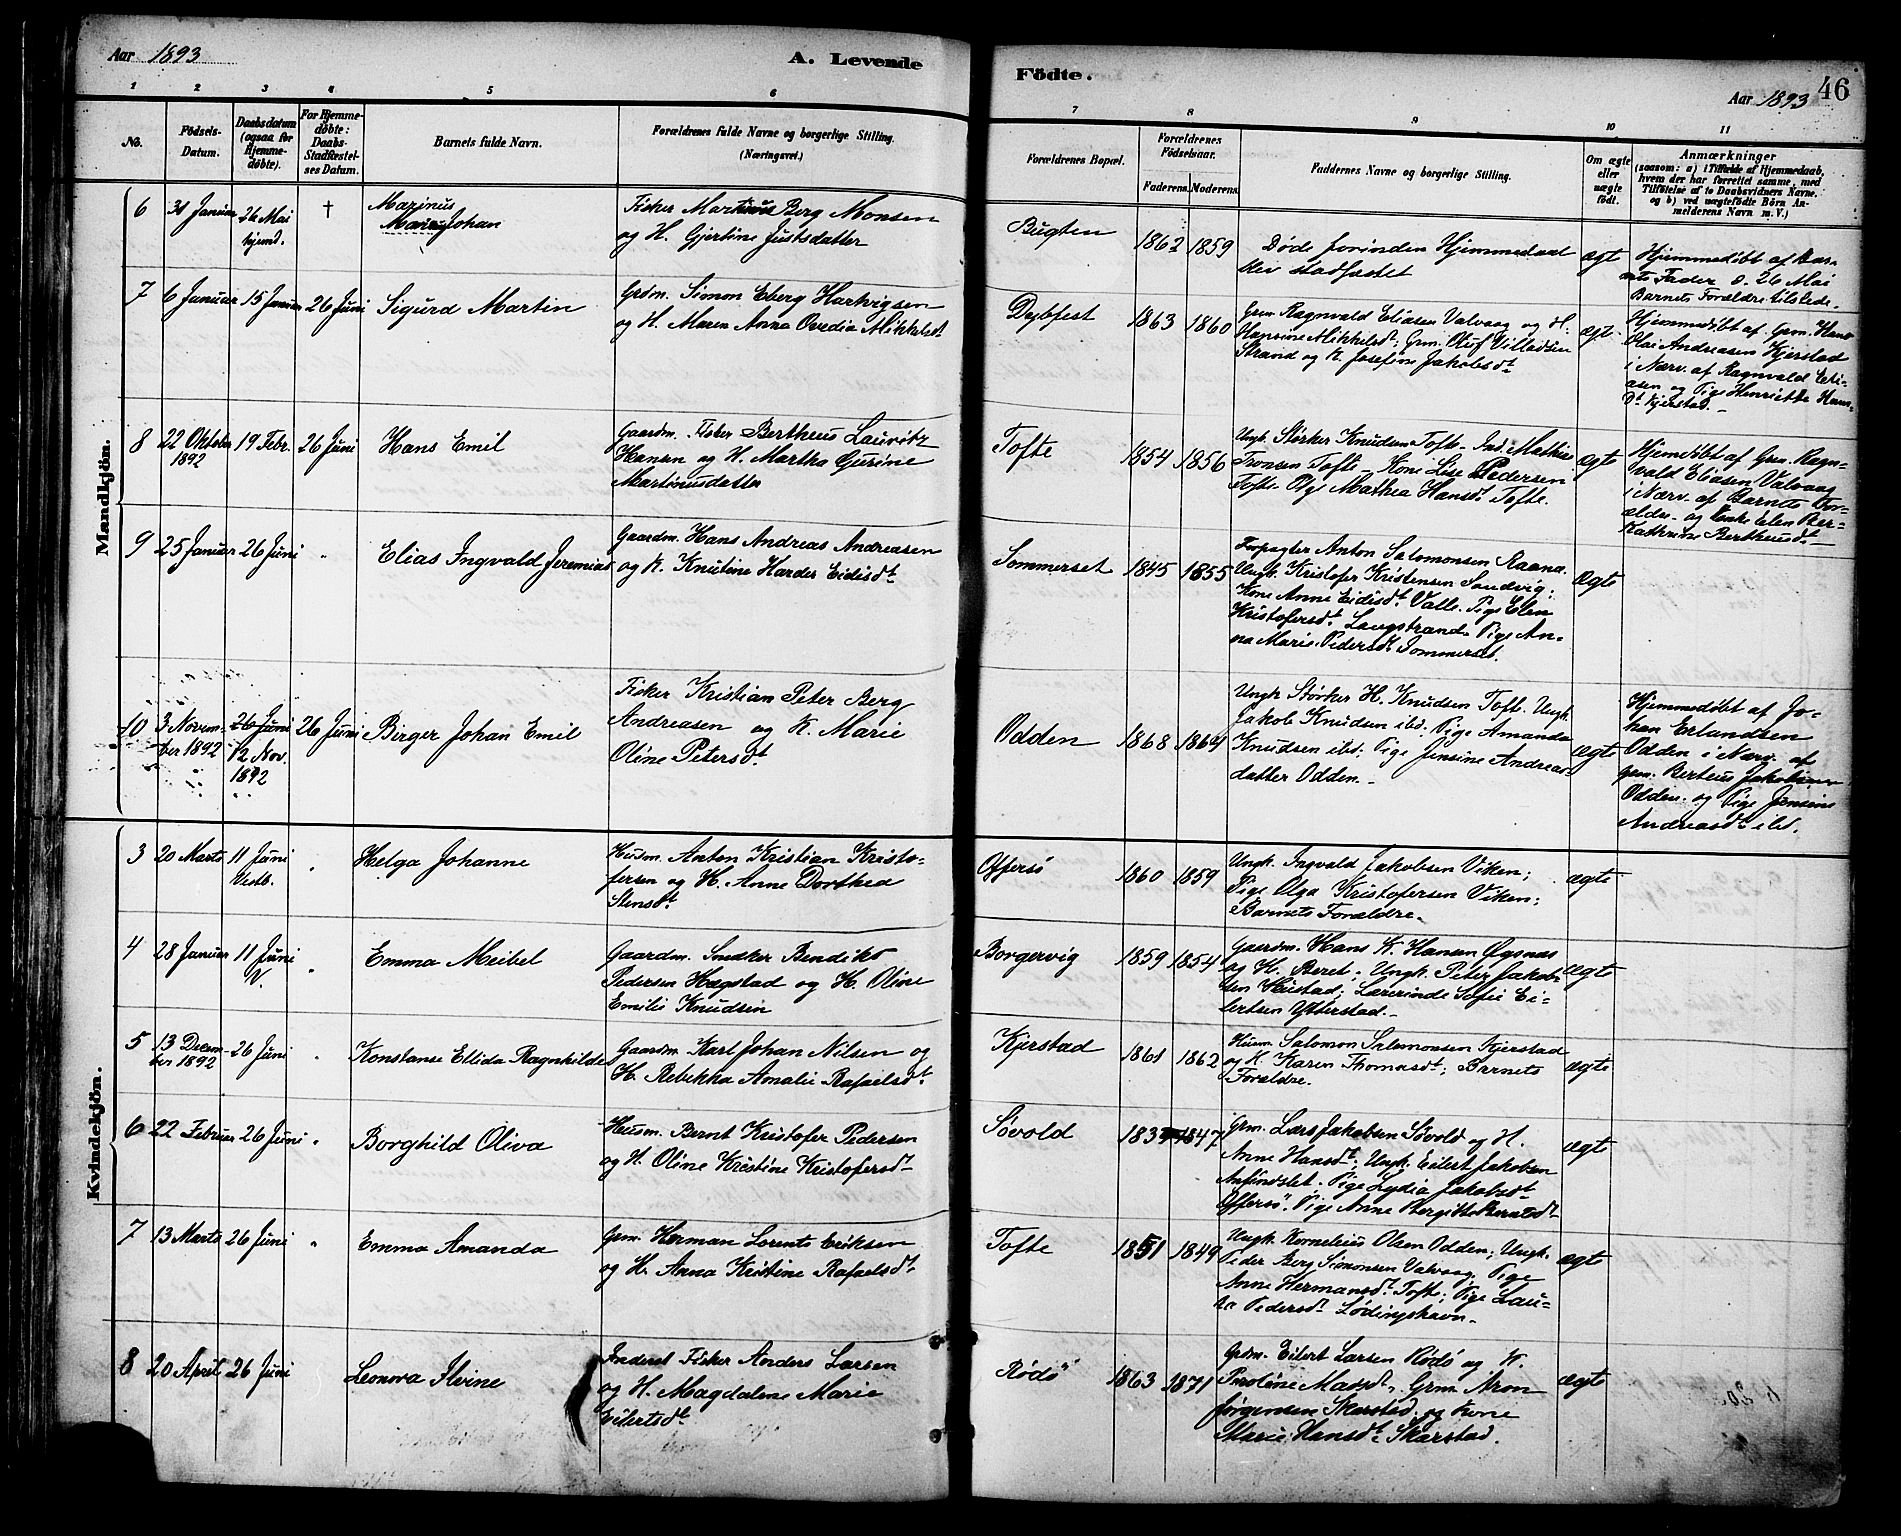 Aar 1893
A. Levende
Födte.
46
Aar 1893
1 2 3 4 5 6 7 8 9 10 11
No.
Födsels-Datum.
Daabsdatum (ogsaa for Hjemmedøbte).
For Hjemmedøbte: Daabs-Stadfæstelses Datum.
Barnets fulde Navn.
Forældrenes fulde Navne og borgerlige Stilling. (Næringsvei.)
Forældrenes Bopæl.
Forældrenes Födselsaar.
Faderens. Moderens.
Faddernes Navne og borgerlige Stilling.
Om ægte eller uægte født.
Anmærkninger
(saasom: a) i Tilfælde af Hjemmedaab, hvem der har forrettet samme, med Tilföielse af to Daabsvidners Navne. og b) ved uægtefödte Börn Anmelderens Navn m. V.)
Mandkjön.
6 31 Januar 26 Mai hjemd. † Marinus Johan
Fisker Martinus Berg Monsen
og H. Gjertine Justsdatter
Bugten 1862 1859
Døde forinden Hjemmedaab
blev stadfæstet
ægt
Hjemmedøbt af Barnets Fader d. 26 Mai
Barnets Forældre tilstede.
7 6 Januar 15 Januar 26 Juni Sigurd Martin
Grdm. Simon Eberg Hartvigsen
og H. Maren Anna Ovedia Mikkelsdt
Dybfest 1863 1860
Grm Ragnvald Eliasen Valvaag og H.
Hansine Mikkelsdt; Grm. Oluf Villadsen
Strand og K. Josefine Jakobsdt
ægt.
Hjemmedöbt af Grm. Hans
Olai Andreasen Kjerstad
i Nærv. af Ragnvald Eliasen og Pige Henriette Hansdt Kjerstad.
8 22 Oktober 1892 19 Febr. 26 Juni Hans Emil
Gaardm. Fisker Bertheus Lauritz
Hansen og H. Martha Gurine
Martinusdatter
Tofte 1854 1856
Ungk. Størker Knudsen Tofte. Ind. Mathis
Tronsen Tofte - Kone Lise Pedersen
Tofte. Pige Mathea Hansdt Tofte.
ægte
Hjemdöbt af Grm. Ragnvald Eliasen Valvaag
i Nærv. af Barnets Forældre. og Enke Elen Ber-
Kathrine Bertheusdt
9 25 Januar 26 Juni " Elias Ingvald Jeremias
Gaardm. Hans Andreas Andreasen
og K. Knutine Harder Eidisdt
Sommerset 1845 1855
Forpagter Anton Salomonsen Raana.
Ungk. Kristofer Kristensen Sandvig;
Kone Anne Eidisdt Valle. Pige Elen
Kristofersdt Langstrand. Pige Anna Marie Pedersdt Sommerset.
Ægte
10 3 November 1892 26 Juni 12 Nov. 1892 26 Juni Birger Johan Emil
Fisker Kristian Peter Berg
Andreasen og K. Marie
Oline Petersdt
Odden 1868 1864
Ungk Störker H. Knudsen Tofte. Ungk.
Jakob Knudsen ibd. Pige Amanda
Knudsen ibd; Pige Jensine Andreasdatter Odden.
ægte
Hjemmedöbt af Johan Erlandsen
Odden i Nærv. af
Grm. Berteus Jakobsen
Odden. og Pige Jensine
Andreasdt ibd.
Kvindekjön.
3 20 Marts 11 Juni Vestb. " Helga Johanne
Husm. Anton Kristian Kristofersen og H. Anne Dorthea
Stensdt
Offersö 1860 1859
Ungk. Ingvald Jakobsen Viken;
Pige Olga Kristofersen Viken;
Barnets Forældre.
ægte
4 28 Januar 11 Juni V. " Emma Meibel
Gaardm. Snedker Bendiks
Pedersen Hægstad og H. Oline
Emilie Knudsen
Borgervig 1859 1854
Gaardm. Hans K. Hansen Øgsnæs
og H. Beret; Ungk. Peter Jakobsen Kaustad; Lærerinde Sofie Eilertsen Ytterstad.
ægte
5 13 December 1892 26 Juni " Konstanse Ellida Ragnhilde
Gaardm. Karl Johan Nilsen og
H. Rebekka Amalie Rafaelsdt
Kjerstad 1861 1862
Husm. Salomon Salomonsen Kjerstad
og K. Karen Thomasdt; Barnets
Forældre.
ægte
6 22 Februar 26 Juni " Borghild Oliva
Husm. Bernt Kristofer Pedersen
og H. Oline Kristine Kristofersdt
Søvold 1837 1847
Grm. Lars Jakobsen Søvold og H.
Anne Hansdt; Ungk. Eilert Jakobsen
Anfindslet. Pige Lydia Jakobsdt
Offersö. Pige Anne Bergitte Berntsdt
ægt
7 13 Marts 26 Juni " Emma Amanda
Grm. Herman Lorents Eriksen
og H. Anna Kristine Rafaelsdt
Tofte 1851 1849
Ungk. Kornelius Olsen Odden; Ungk.
Peder Berg Simonsen Valvaag; Pige
Anne Hermansdt Tofte; Pige Laura Pedersdt Lödingshavn.
ægte
8 20 April 26 Juni Leonora Ilvine
Inderst Fisker Anders Larsen
og H. Magdalene Marie
Eilertsdt
Rödö 1863 1871
Grdm. Eilert Larsen Rödö og K.
Pauline Masdt. Grm Aron
Jörgensen Skarstad. og Kone
Marie Hansdt Skarstad.
ægt